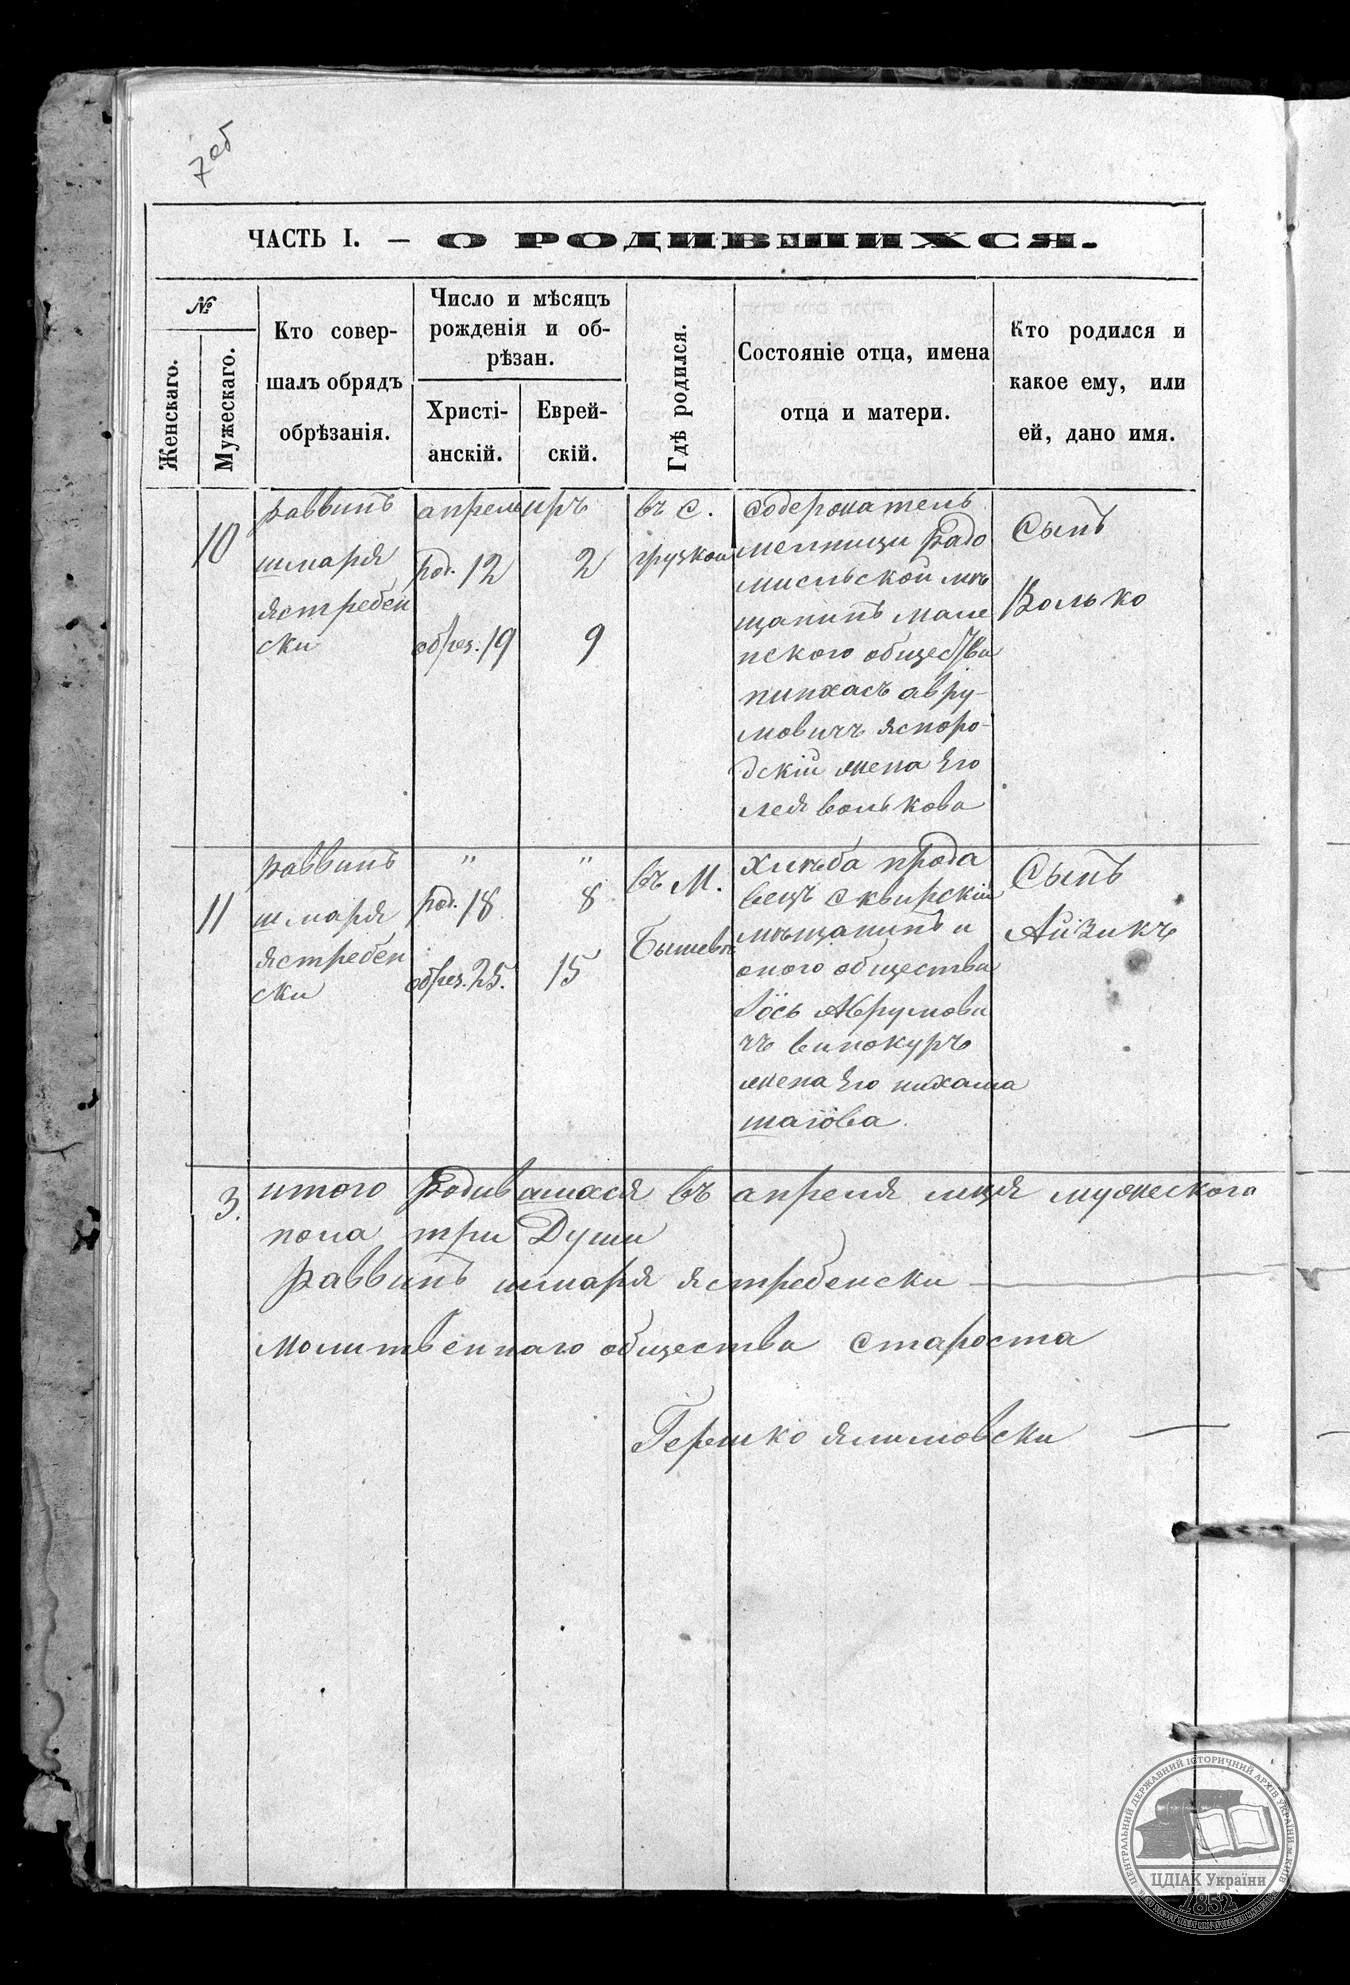 7 об
ЧАСТЬ I. — О РОДИВШИХСЯ.
№
Женскаго.
Мужескаго.
Кто совер-
шалъ обрядъ
обрѣзанія.
Число и мѣсяцъ
рожденія и об-
рѣзан.
Христі-
анскій.
Еврей-
скій.
Гдѣ родился.
Состояніе отца, имена
отца и матери.
Кто родился и
какое ему, или
ей, дано имя.
10
раввинъ
шмаря
ястребен
ски
апрель
род. 12
обрез. 19
иръ
2
9
въ с.
грузкой
содержатель
мелницы Радо
мисльской мѣ
щанинъ мале
нского общества
пинхасъ авру-
мовичъ яспоро-
дскій жена Его
лея волькова
Сынъ
Волько
11
раввинъ
шмаря
ястребен
ски
"
род. 18
обрез. 25.
"
8
15
въ М.
Бышевѣ
хлѣба прода
вецъ Сквирскій
мѣщанинъ и
оного общества
Іось Аврумови
чъ винокуръ
жена Его нихама
шагова
Сынъ
Айзикъ
3.
итого родившихся въ апреля мця мужеского
пола три Души
раввинъ шмаря ястребенски
молитвеннаго общества староста
Гершко ялимовски
ЦЕНТРАЛЬНИЙ ДЕРЖАВНИЙ ІСТОРИЧНИЙ АРХІВ УКРАЇНИ, м. КИЇВ
ЦДІАК України
1852